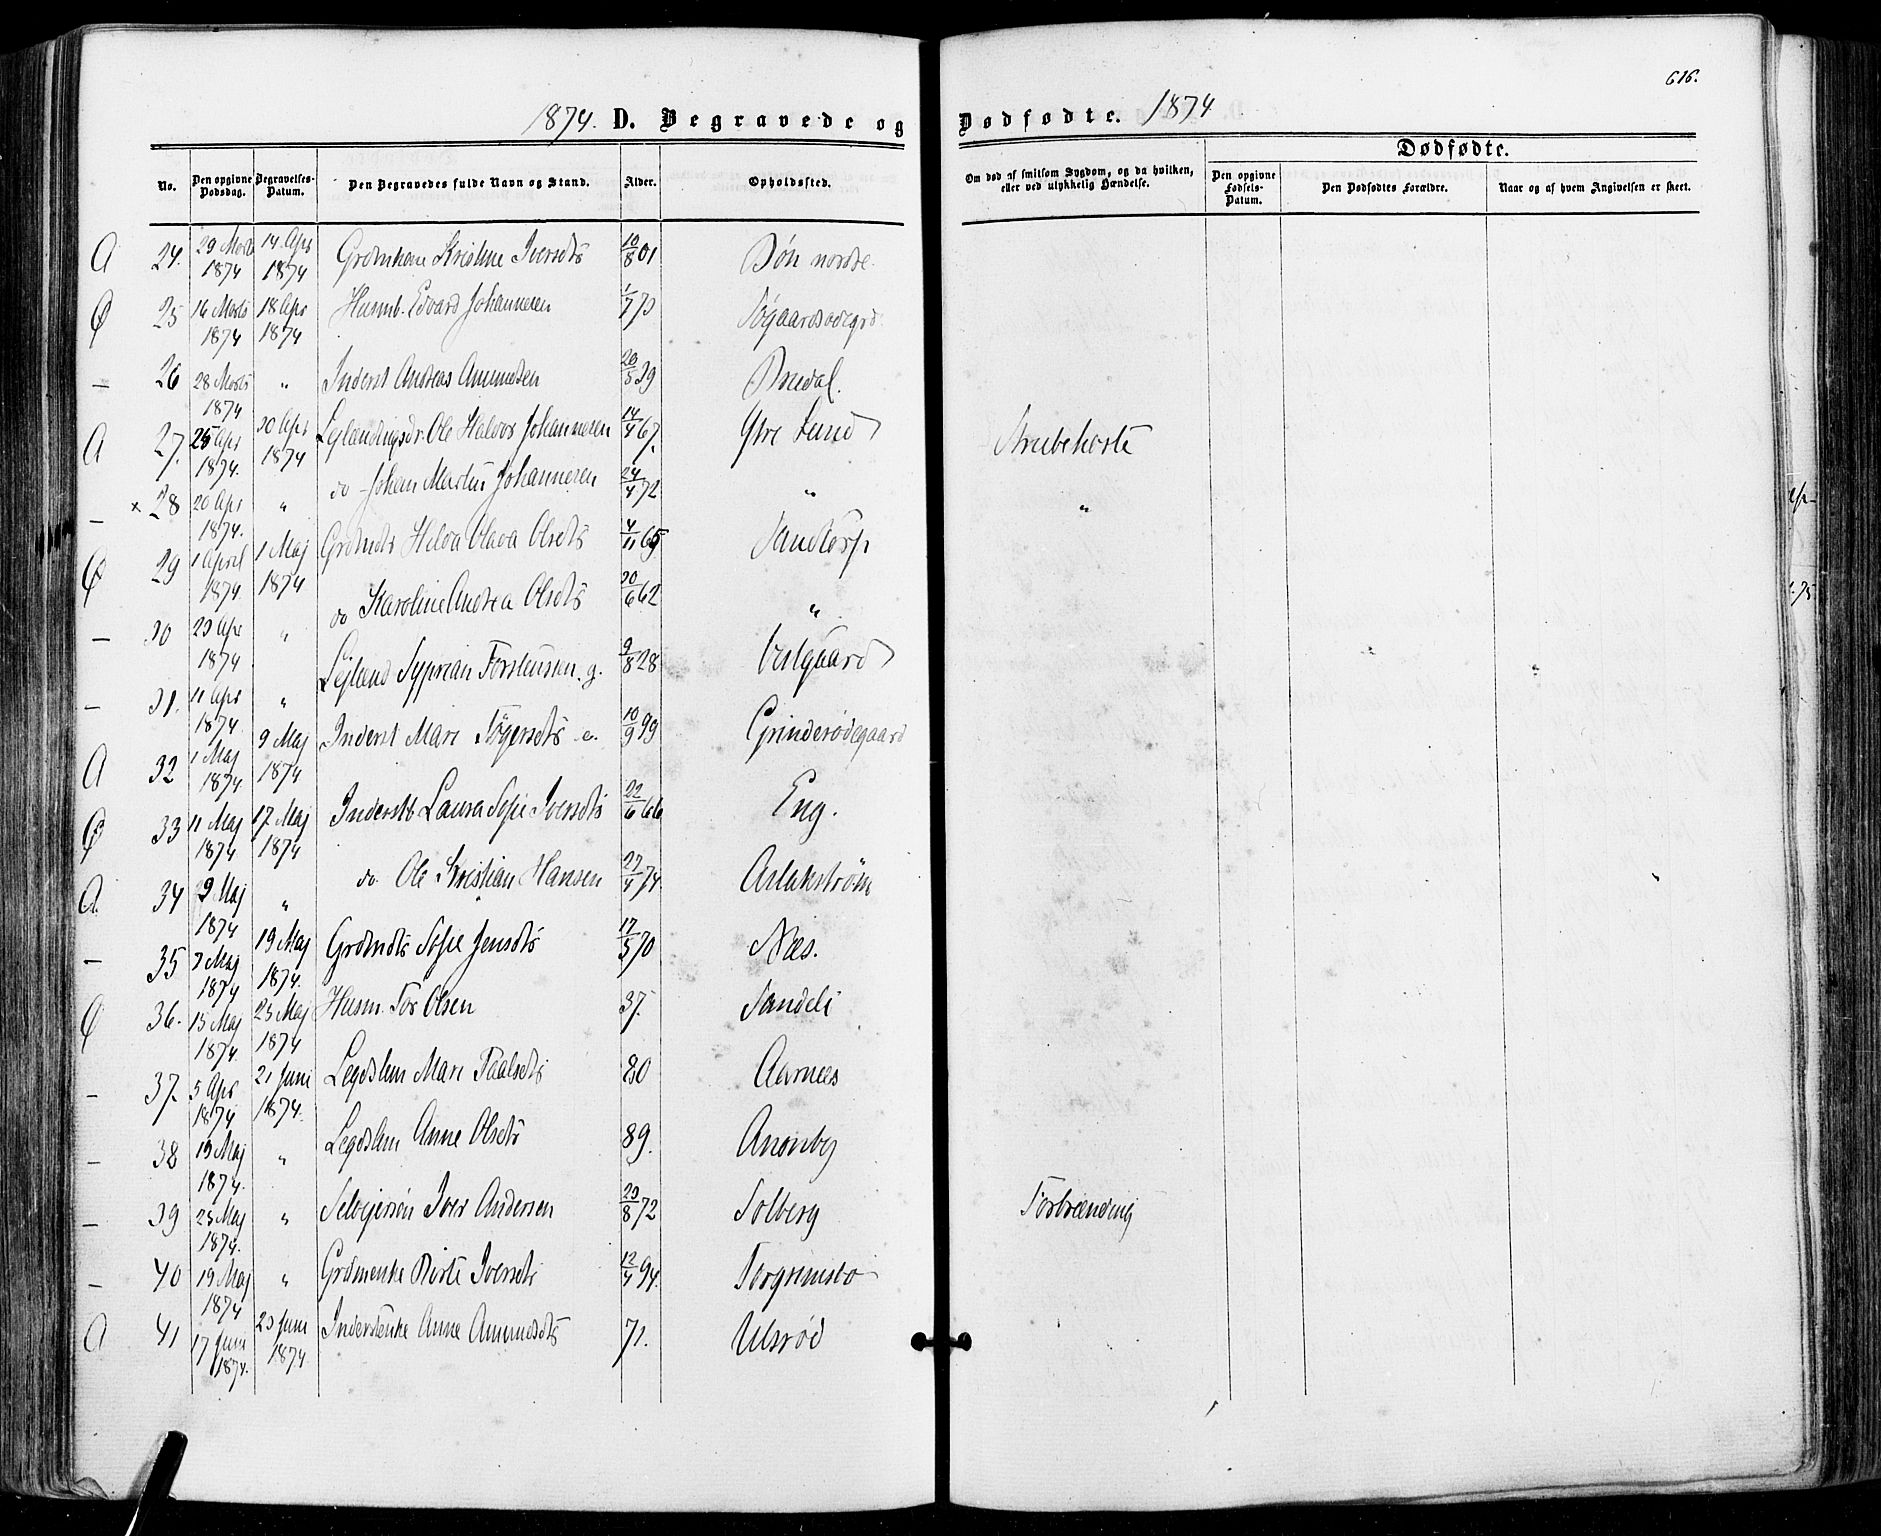 616.
1874. D. Begravede og Dødfødte. 1874
No.
Den opgivne Dødsdag.
Begravelses-Datum.
Den Begravedes fulde Navn og Stand.
Alder.
Opholdssted.
Om død af smitsom Sygdom, og da hvilken, eller ved ulykkelig Hændelse.
Dødfødte.
Den opgivne Fødsels-Datum.
Den Dødfødtes Forældre.
Naar og af hvem Angivelsen er skeet.
A 24. 29 Marts 1874 14 Apr 1874 Kristine Iversdtr 10/8 01 Bön nordre.
Ø 25 16 Marts 1874 18 Apr 1874 Husmb. Edvard Johannesen 1/7 73
— 26 28 Marts 1874 " Inderst Andreas Amundsen 20/5 39 Bredal.
A 27. 25 Apr 1874. 30 Apr 1874 Ole Halvor Johannesen 14/4 67. Ytre Lund Strubehoste
— × 28 20 Apr 1874. " do Johan Martin Johannesen 24/4 72 " "
Ø 29 1 April 1874. 1 Maj 1874 Grdmdtr Helva Olava Olsdtr 4/11 65 Sandtorp
— 30 23 Apr 1874 " do Karoline Andrea Olsdtr 30/6 62 "
— 31. 11 Apr 1874. " Leilænd Syprian Torstensen. g. 9/8 28 Vestgaard
A 32 1 Maj 1874 9 Maj 1874 Inderst Mari e. 10/9 99 Grinderødegaard
Ø 33 11 Maj 1874 17 Maj 1874 Laura Sofie Iversdtr 22/6 66 Eng.
A. 34 9 Maj 1874 " do Ole Kristian Hansen 27/4 74. Aslakstrøm
— 35 7 Maj 1874 19 Maj 1874. Grdmdtr Sofie Jensdtr 17/5 70 Næs.
Ø 36. 15 Maj 1874. 23 Maj 1874 Husm. Tor Olsen 37. Sandeli
— 37. 5 Apr 1874 21 Juni 1874. Legdslem Mari Paalsdtr 80 Aarnæs
— 38 19 Maj 1874. " Legdslem Anne Olsdtr 89.
— 39 25 Maj 1874. " Selvejersøn Iver Andersen 29/8 72 Solberg Forbrænding
— 40 19 Maj 1874 " Grdmenke Birte Iversdtr 12/4 94. Torgrimsbo
A 41 17 Juni 1874. 23 Juni 1874 Inderstenke Anne Amundsdtr 71. Ulsrød